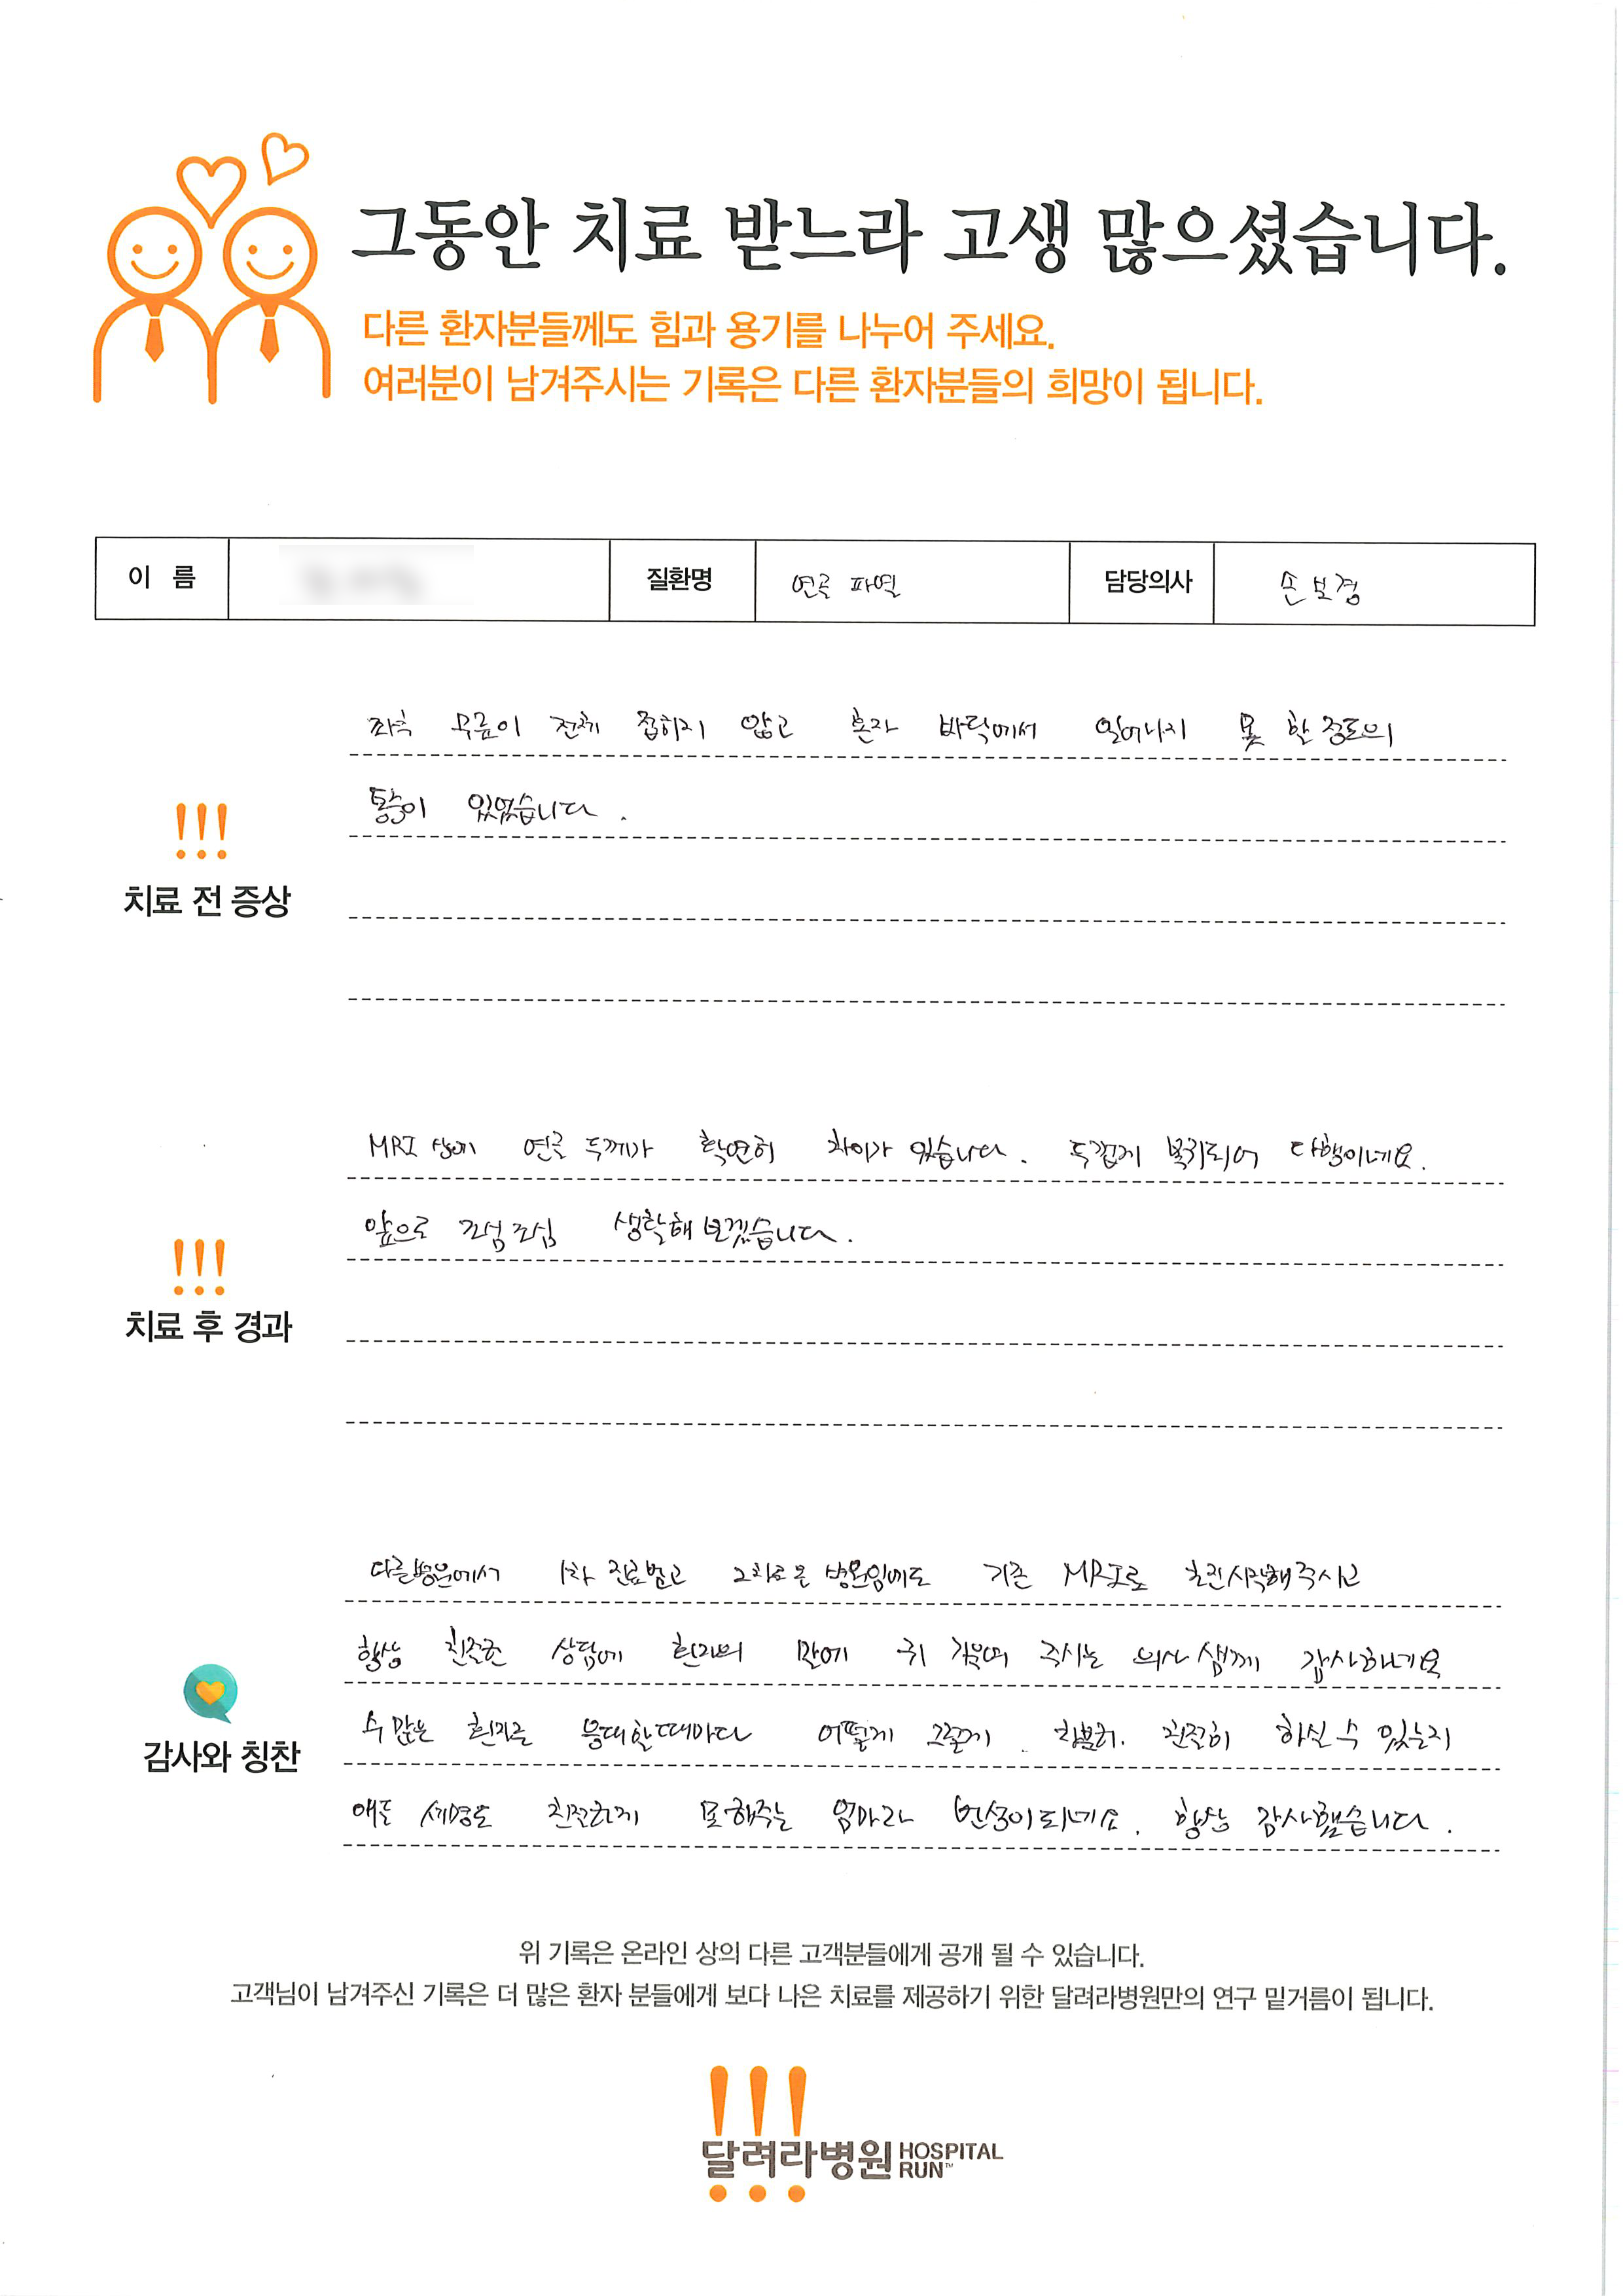 그동안 치료 받느라 고생 많으셨습니다.
다른 환자분들께도 힘과 용기를 나누어 주세요.
여러분이 남겨주시는 기록은 다른 환자분들의 희망이 됩니다.
이 름 질환명 연골 파열 담당의사 손보경
좌측 무릎이 전체 접히지 않고 혼자 바닥에서 일어나지 못 할 정도의
통증이 있었습니다.
!!!
치료 전 증상
MRI 상에 연골 두께가 확연히 차이가 있습니다. 두껍게 복귀되어 다행이네요.
앞으로 조심조심 생활해보겠습니다.
!!!
치료 후 경과
다른병원에서 1차 진료받고 2차로 온 병원임에도 기존 MRI로 초진시작해주시고
항상 친절한 상담에 환자의 말에 귀 기울여 주시는 의사 샘께 감사하네요
수많은 환자를 응대할때마다 어떻게 그렇게 차분히. 친절히 하실 수 있는지
애들 세명도 친절하게 못해주는 엄마라 반성이되네요. 항상 감사했습니다.
감사와 칭찬
위 기록은 온라인 상의 다른 고객분들에게 공개 될 수 있습니다.
고객님이 남겨주신 기록은 더 많은 환자 분들에게 보다 나은 치료를 제공하기 위한 달려라병원만의 연구 밑거름이 됩니다.
!!!
달려라병원 HOSPITAL RUN™